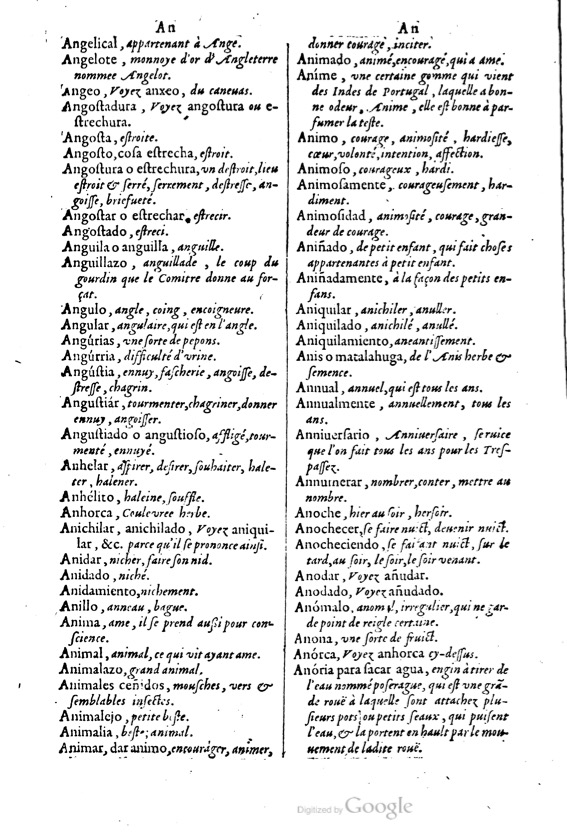 An
Angelical, appartenant à Ange.
Angelote, monnoye d'or d'Angleterre
nommee Angelot.
Angeo, Voyez anxeo, du caneuas.
Angostadura, Voyez angostura ou e-
strechura.
Angosta, estroite.
Angosto, cosa estrecha, estroit.
Angostura o estrechura, vn destroit, lieu
estroit & serré, serrement, destresse, an-
goisse, briefueté.
Angostar o estrechar, estrecir.
Angostado, estreci.
Anguila o anguilla, anguille.
Anguillazo, anguillade, le coup du
gourdin que le Comitre donne au for-
çat.
Angulo, angle, coing, encoigneure.
Angular, angulaire, qui est en l'angle.
Angúrias, vne sorte de pepons.
Angúrria, difficulté d'vrine.
Angústia, ennuy, fascherie, angoisse, de-
stresse, chagrin.
Angustiár, tourmenter, chagriner, donner
ennuy, angoisser.
Angustiado o angustioso, affligé, tour-
menté, ennuyé.
Anhelar, aspirer, desirer, souhaiter, hale-
ter, halener.
Anhélito, haleine, souffle.
Anhorca, Couleuree herbe.
Anichilar, anichilado, Voyez aniqui-
lar, &c. parce qu'il se prononce ainsi.
Anidar, nicher, faire son nid.
Anidado, niché.
Anidamiento, nichement.
Anillo, anneau, bague.
Anima, ame, il se prend aussi pour con-
science.
Animal, animal, ce qui vit ayant ame.
Animalazo, grand animal.
Animales ceñidos, mousches, vers &
semblables insectes.
Animalejo, petite beste.
Animalia, beste; animal.
Animar, dar animo, encourager, animer,
An
donner courage, inciter.
Animado, animé, encouragé, qui a ame.
Aníme, vne certaine gomme qui vient
des Indes de Portugal, laquelle a bon-
ne odeur, Anime, elle est bonne à par-
fumer la teste.
Animo, courage, animosité, hardiesse,
cœur, volonté, intention, affection.
Animoso, courageux, hardi.
Animosamente, courageusement, har-
diment.
Animosidad, animosité, courage, gran-
deur de courage.
Aniñado, de petit enfant, qui fait choses
appartenantes à petit enfant.
Aniñadamente, à la façon des petits en-
fans.
Aniquilar, anichiler, anuller.
Aniquilado, anichilé, anullé.
Aniquilamiento, aneantissement.
Anis o matalahuga, de l'Anis herbe &
semence.
Annual, annuel, qui est tous les ans.
Annualmente, annuellement, tous les
ans.
Anniuersario, Anniuersaire, seruice
que l'on fait tous les ans pour les Tres-
passez.
Annumerar, nombrer, conter, mettre au
nombre.
Anoche, hier au soir, hersoir.
Anochecer, se faire nuict, deuenir nuict.
Anocheciendo, se faisant nuict, sur le
tard, au soir, le soir, le soir venant.
Anodar, Voyez añudar.
Anodado, Voyez añudado.
Anómalo, anomal, irregulier, qui ne gar-
de point de reigle certaine.
Anona, vne sorte de fruict.
Anórca, Voyez anhorca cy-dessus.
Anória para sacar agua, engin à tirer de
l'eau nommé poserague, qui est vne grã-
de rouë à laquelle sont attachez plu-
sieurs pots ou petits seaux, qui puisent
l'eau, & la portent en hault par le mou-
uement de ladite rouë.
Digitized by Google